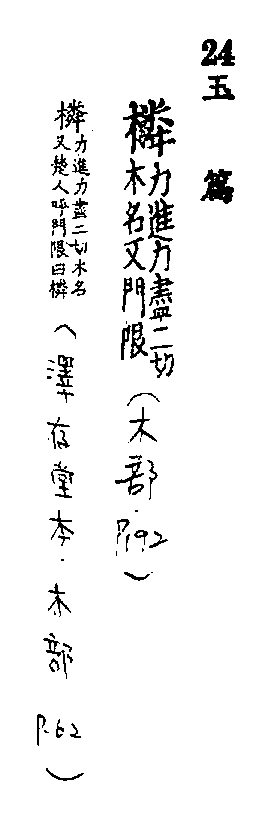 24
玉篇
橉力進力盡二切
木名又門限
(木部.P.192)
橉力進力盡二切木名
又楚人呼門限曰橉
(澤存堂本.木部 P.62)